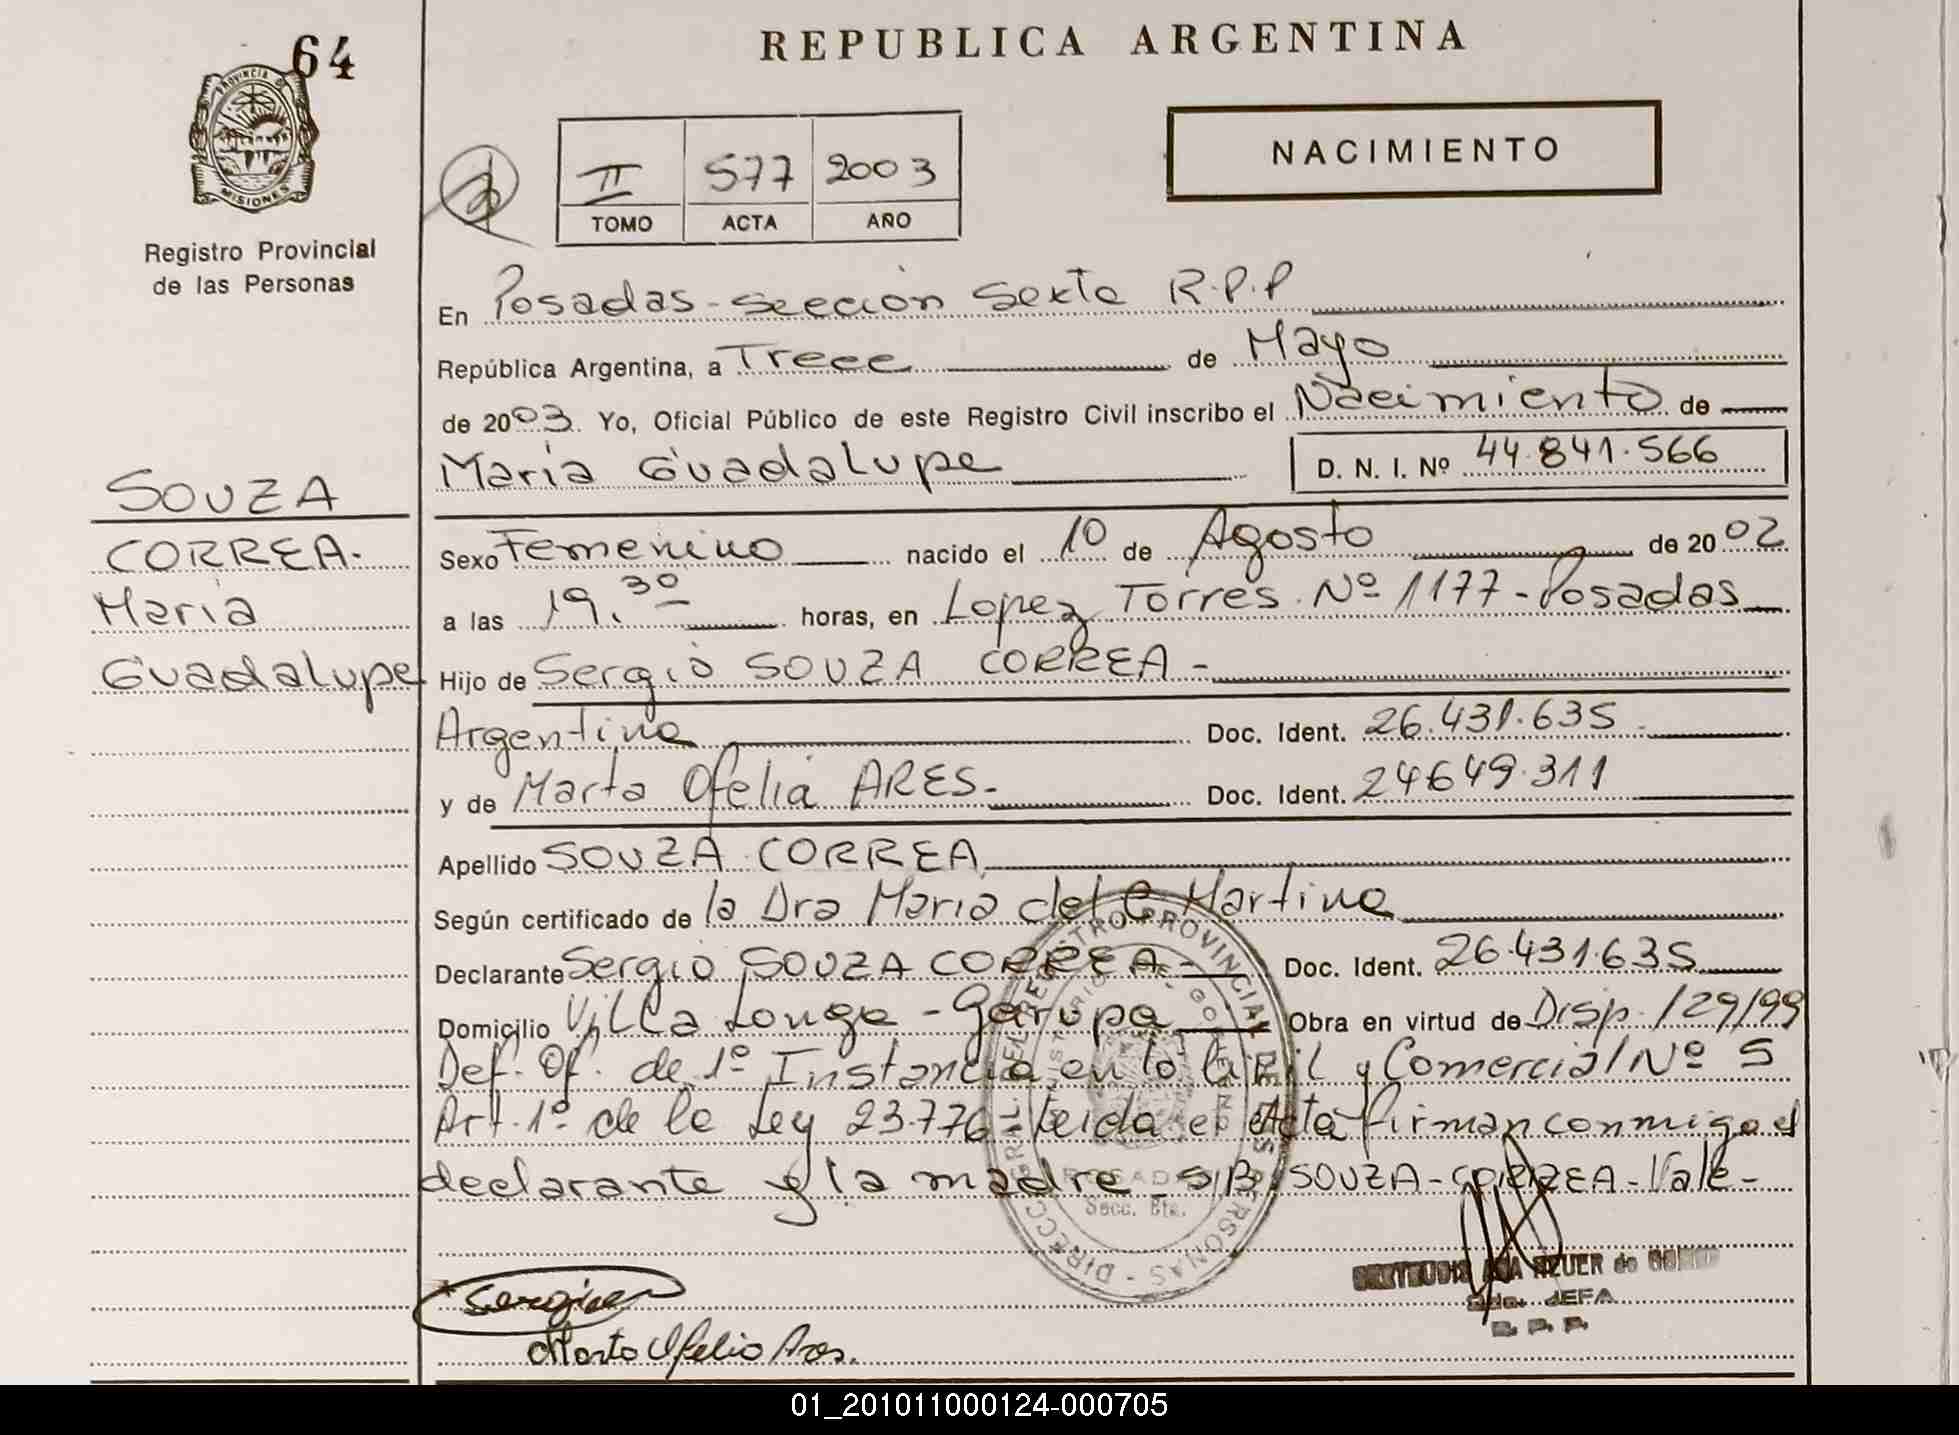 64
PROVINCIA DE
MISIONES
Registro Provincial
de las Personas
SOUZA
CORREA.
Maria
Guadalupe
REPUBLICA ARGENTINA
II 577 2003
TOMO ACTA AÑO
NACIMIENTO
En Posadas - Sección Sexta R.P.P
República Argentina, a Trece de Mayo
de 2003. Yo, Oficial Público de este Registro Civil inscribo el Nacimiento de
Maria Guadalupe D. N. I. Nº 44.841.566
Sexo Femenino nacido el 10 de Agosto de 2002
a las 19.30 horas, en Lopez Torres Nº 1177 - Posadas
Hijo de Sergio SOUZA CORREA -
Argentina Doc. Ident. 26.431.635
y de Marta Ofelia ARES. Doc. Ident. 24649.311
Apellido SOUZA CORREA
Según certificado de la Dra Maria del C Martine
Declarante Sergio SOUZA CORREA - Doc. Ident. 26.431.635
Domicilio Villa Longa - Garupa Obra en virtud de Disp. 129/99
Def. Of. de 1º Instancia en lo Civil y Comercial Nº 5
Art. 1º de la Ley 23.776 - leida el Acta firman conmigo el
declarante y la madre - S/B: SOUZA - CORREA - Vale -
DIRECC. GRAL. DEL REGISTRO PROVINCIAL DE LAS PERSONAS
MINISTERIO DE GOBIERNO
POSADAS
Secc. 6ta.
Marta Ofelia Ares.
JEFA
R. P. P.
01_201011000124-000705